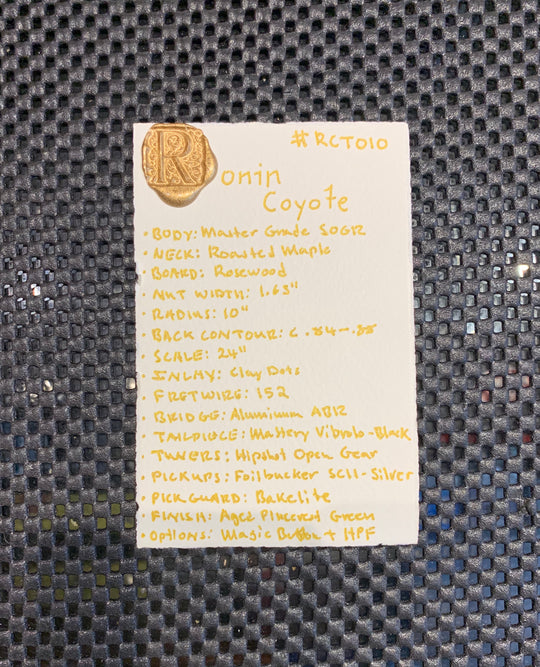 #RCT010
Ronin
Coyote
· BODY: Master Grade SOGR
· NECK: Roasted Maple
· BOARD: Rosewood
· NUT WIDTH: 1.63"
· RADIUS: 10"
· BACK CONTOUR: C .84-.88
· SCALE: 24"
· INLAY: Clay Dots
· FRETWIRE: 152
· BRIDGE: Aluminum ABR
· TAILPIECE: Mastery Vibrato-Black
· TUNERS: Hipshot Open Gear
· PICKUPS: Foilbucker SCII-Silver
· PICKGUARD: Bakelite
· FINISH: Aged Green
· OPTIONS: Magic Button + HPF